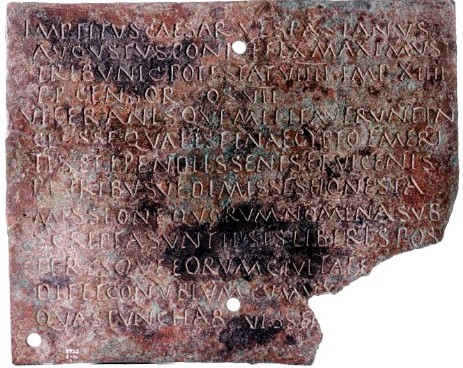 IMP TITVS CAESAR VESPASIANVS
AVGVSTVS PONTIFEX MAXIMVS
TRIBVNIC POTESTAT VIIII IMP XIIII
P P CENSOR COS VII
VETERANIS QVI MILITAVERVNT IN
CLASSE QVAE EST IN AEGYPTO EMERI
TIS STIPENDIIS SENIS ET VICENIS
PLVRIBVSVE DIMISSIS HONESTA
MISSIONE QVORVM NOMINA SVB
SCRIPTA SVNT IPSIS LIBERIS POS
TERISQVE EORVM CIVITATE
DEDIT ET CONVBIVM CVM
QVAS TVNC HABVISSE